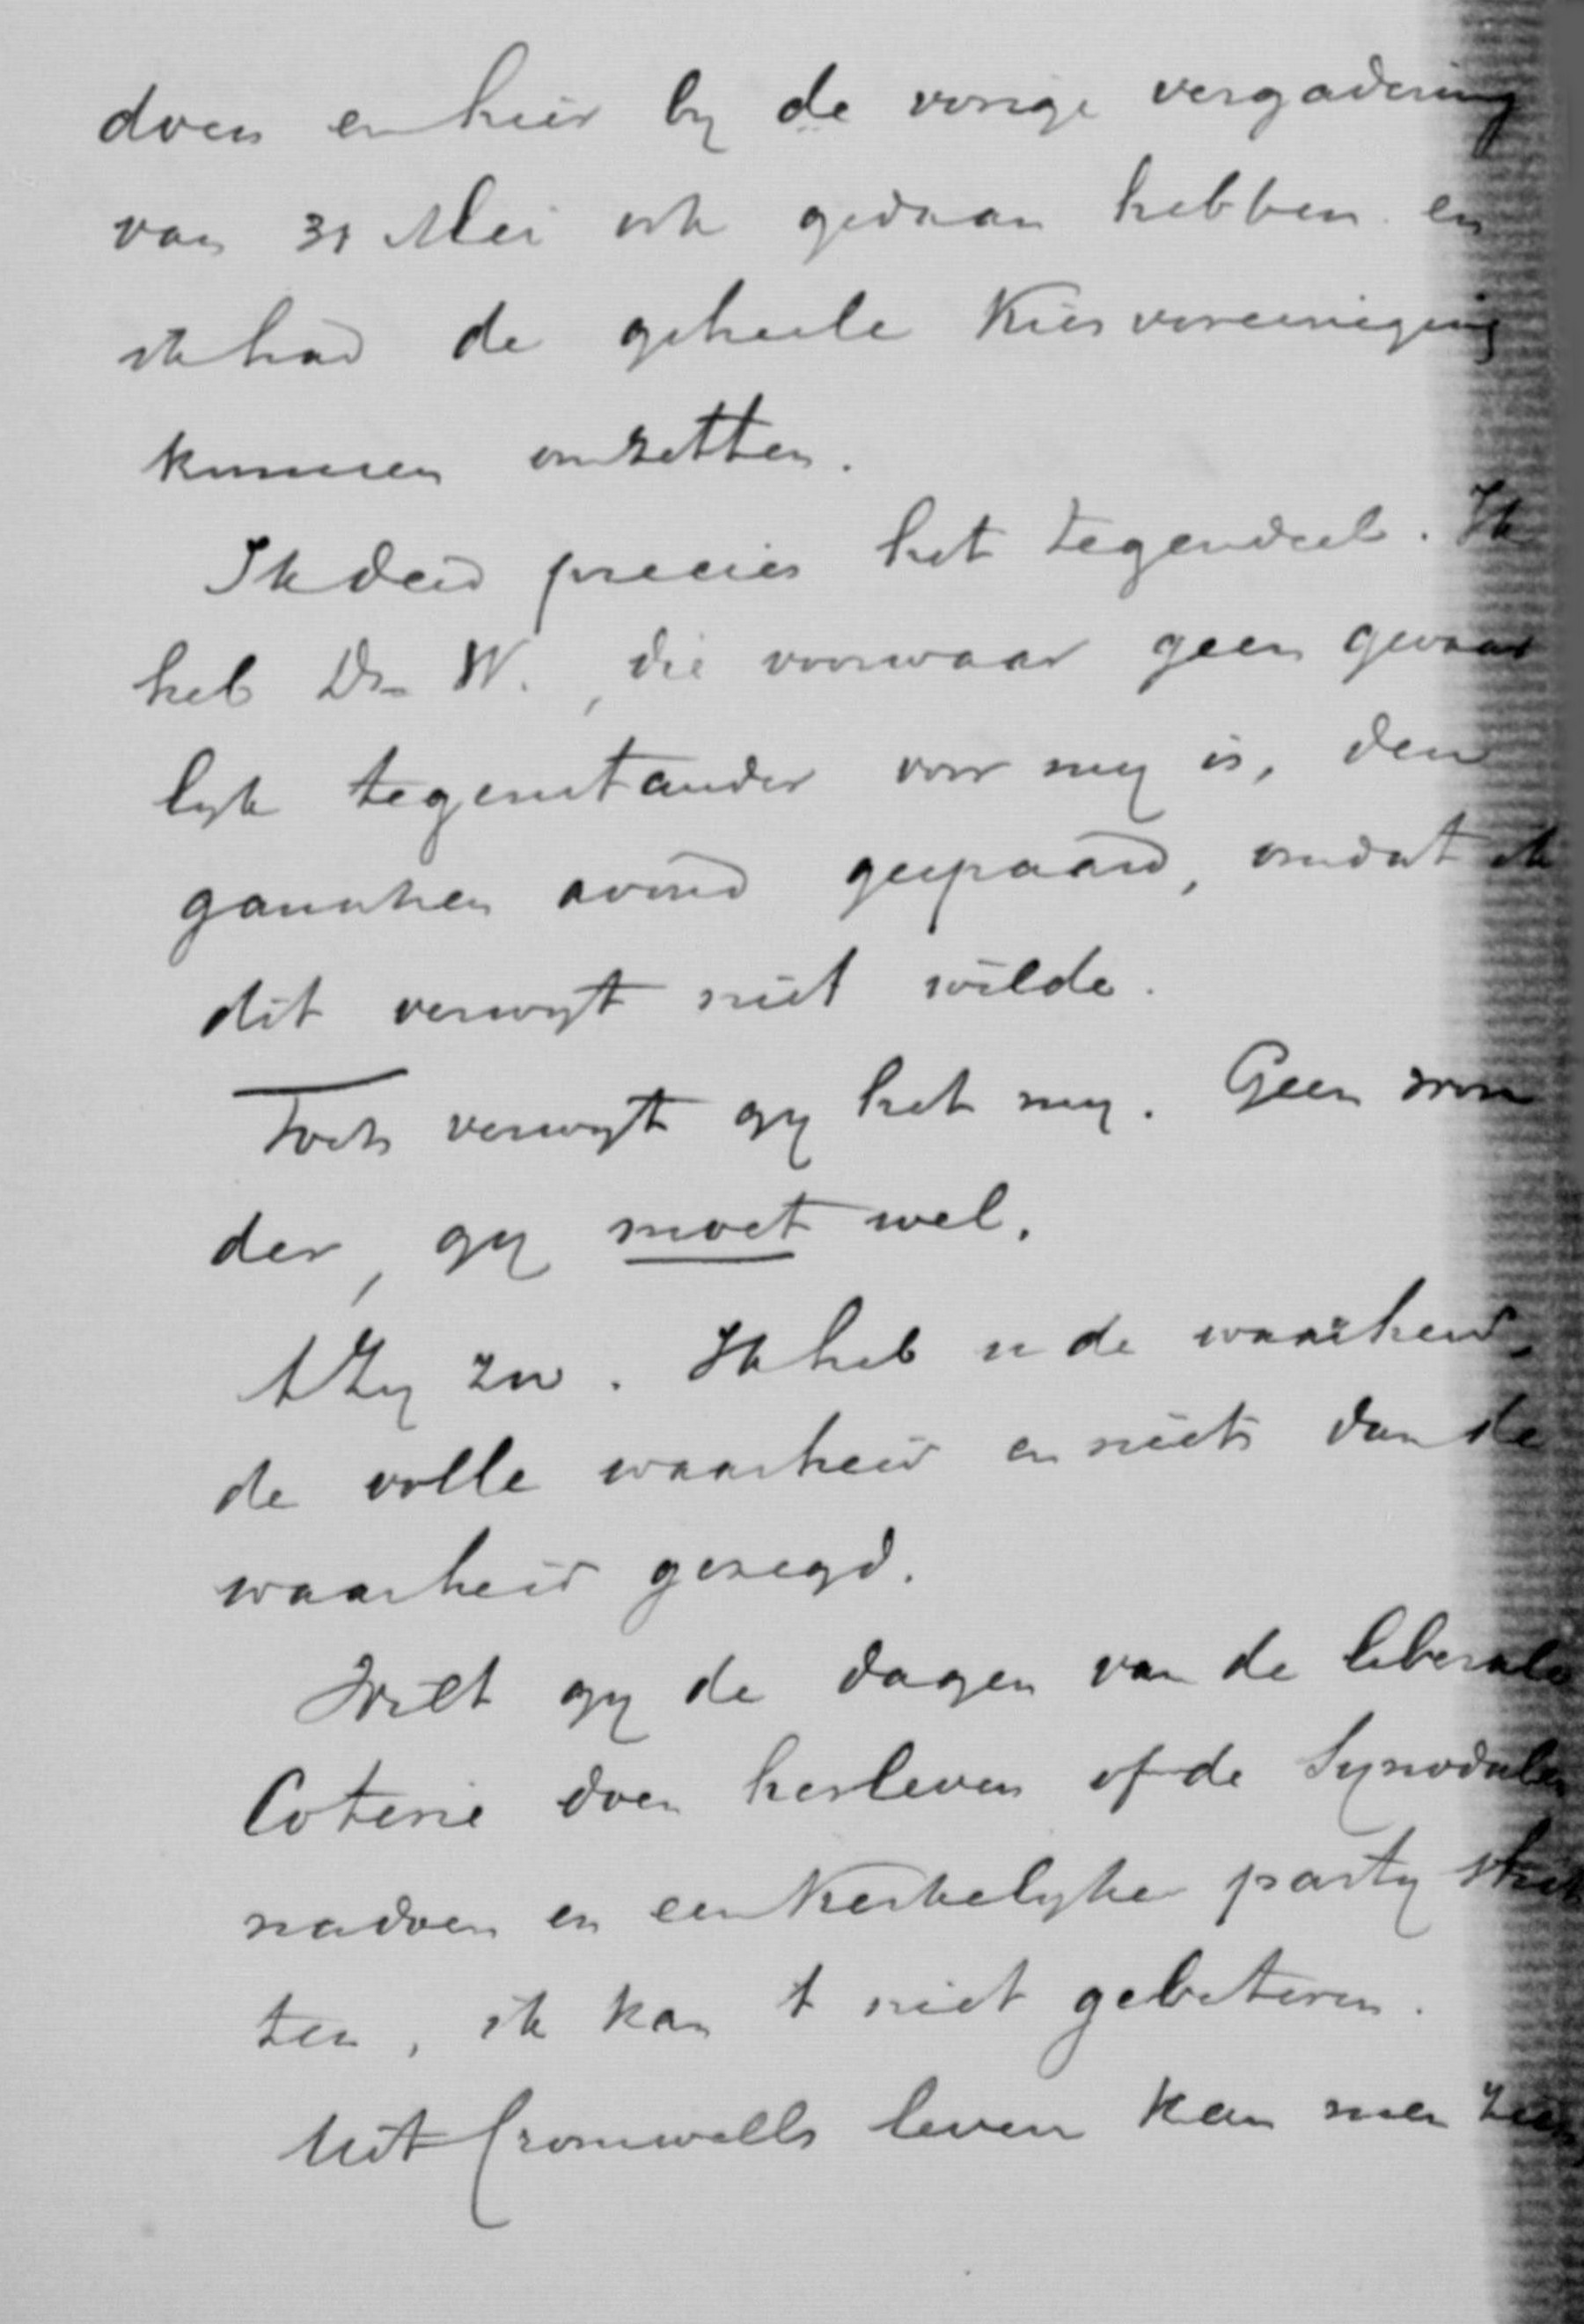 doen en hier by de vorige vergadering
van 31 Mei ook gedaan hebben en
ik had de geheele Kiesvereeniging
kunnen omzetten.
Ik deed precies het tegendeel. Ik
heb Dr. W., die voorwaar geen gevaar
lyk tegenstander voor my is, den
ganschen avond gespaard, omdat ik
dit verwyt niet wilde.
Toch verwyt gy het my. Geen won
der, gy moet wel.
t Zy zoo. Ik heb u de waarheid,
de volle waarheid en niets dan de
waarheid gezegd.
Wilt gy de dagen van de liberale
Coterie doen herleven of de Synodalen
nadoen en een Kerkelyke party stich
ten, ik kan t niet gebeteren.
Uit Cromwells leven kan men zien